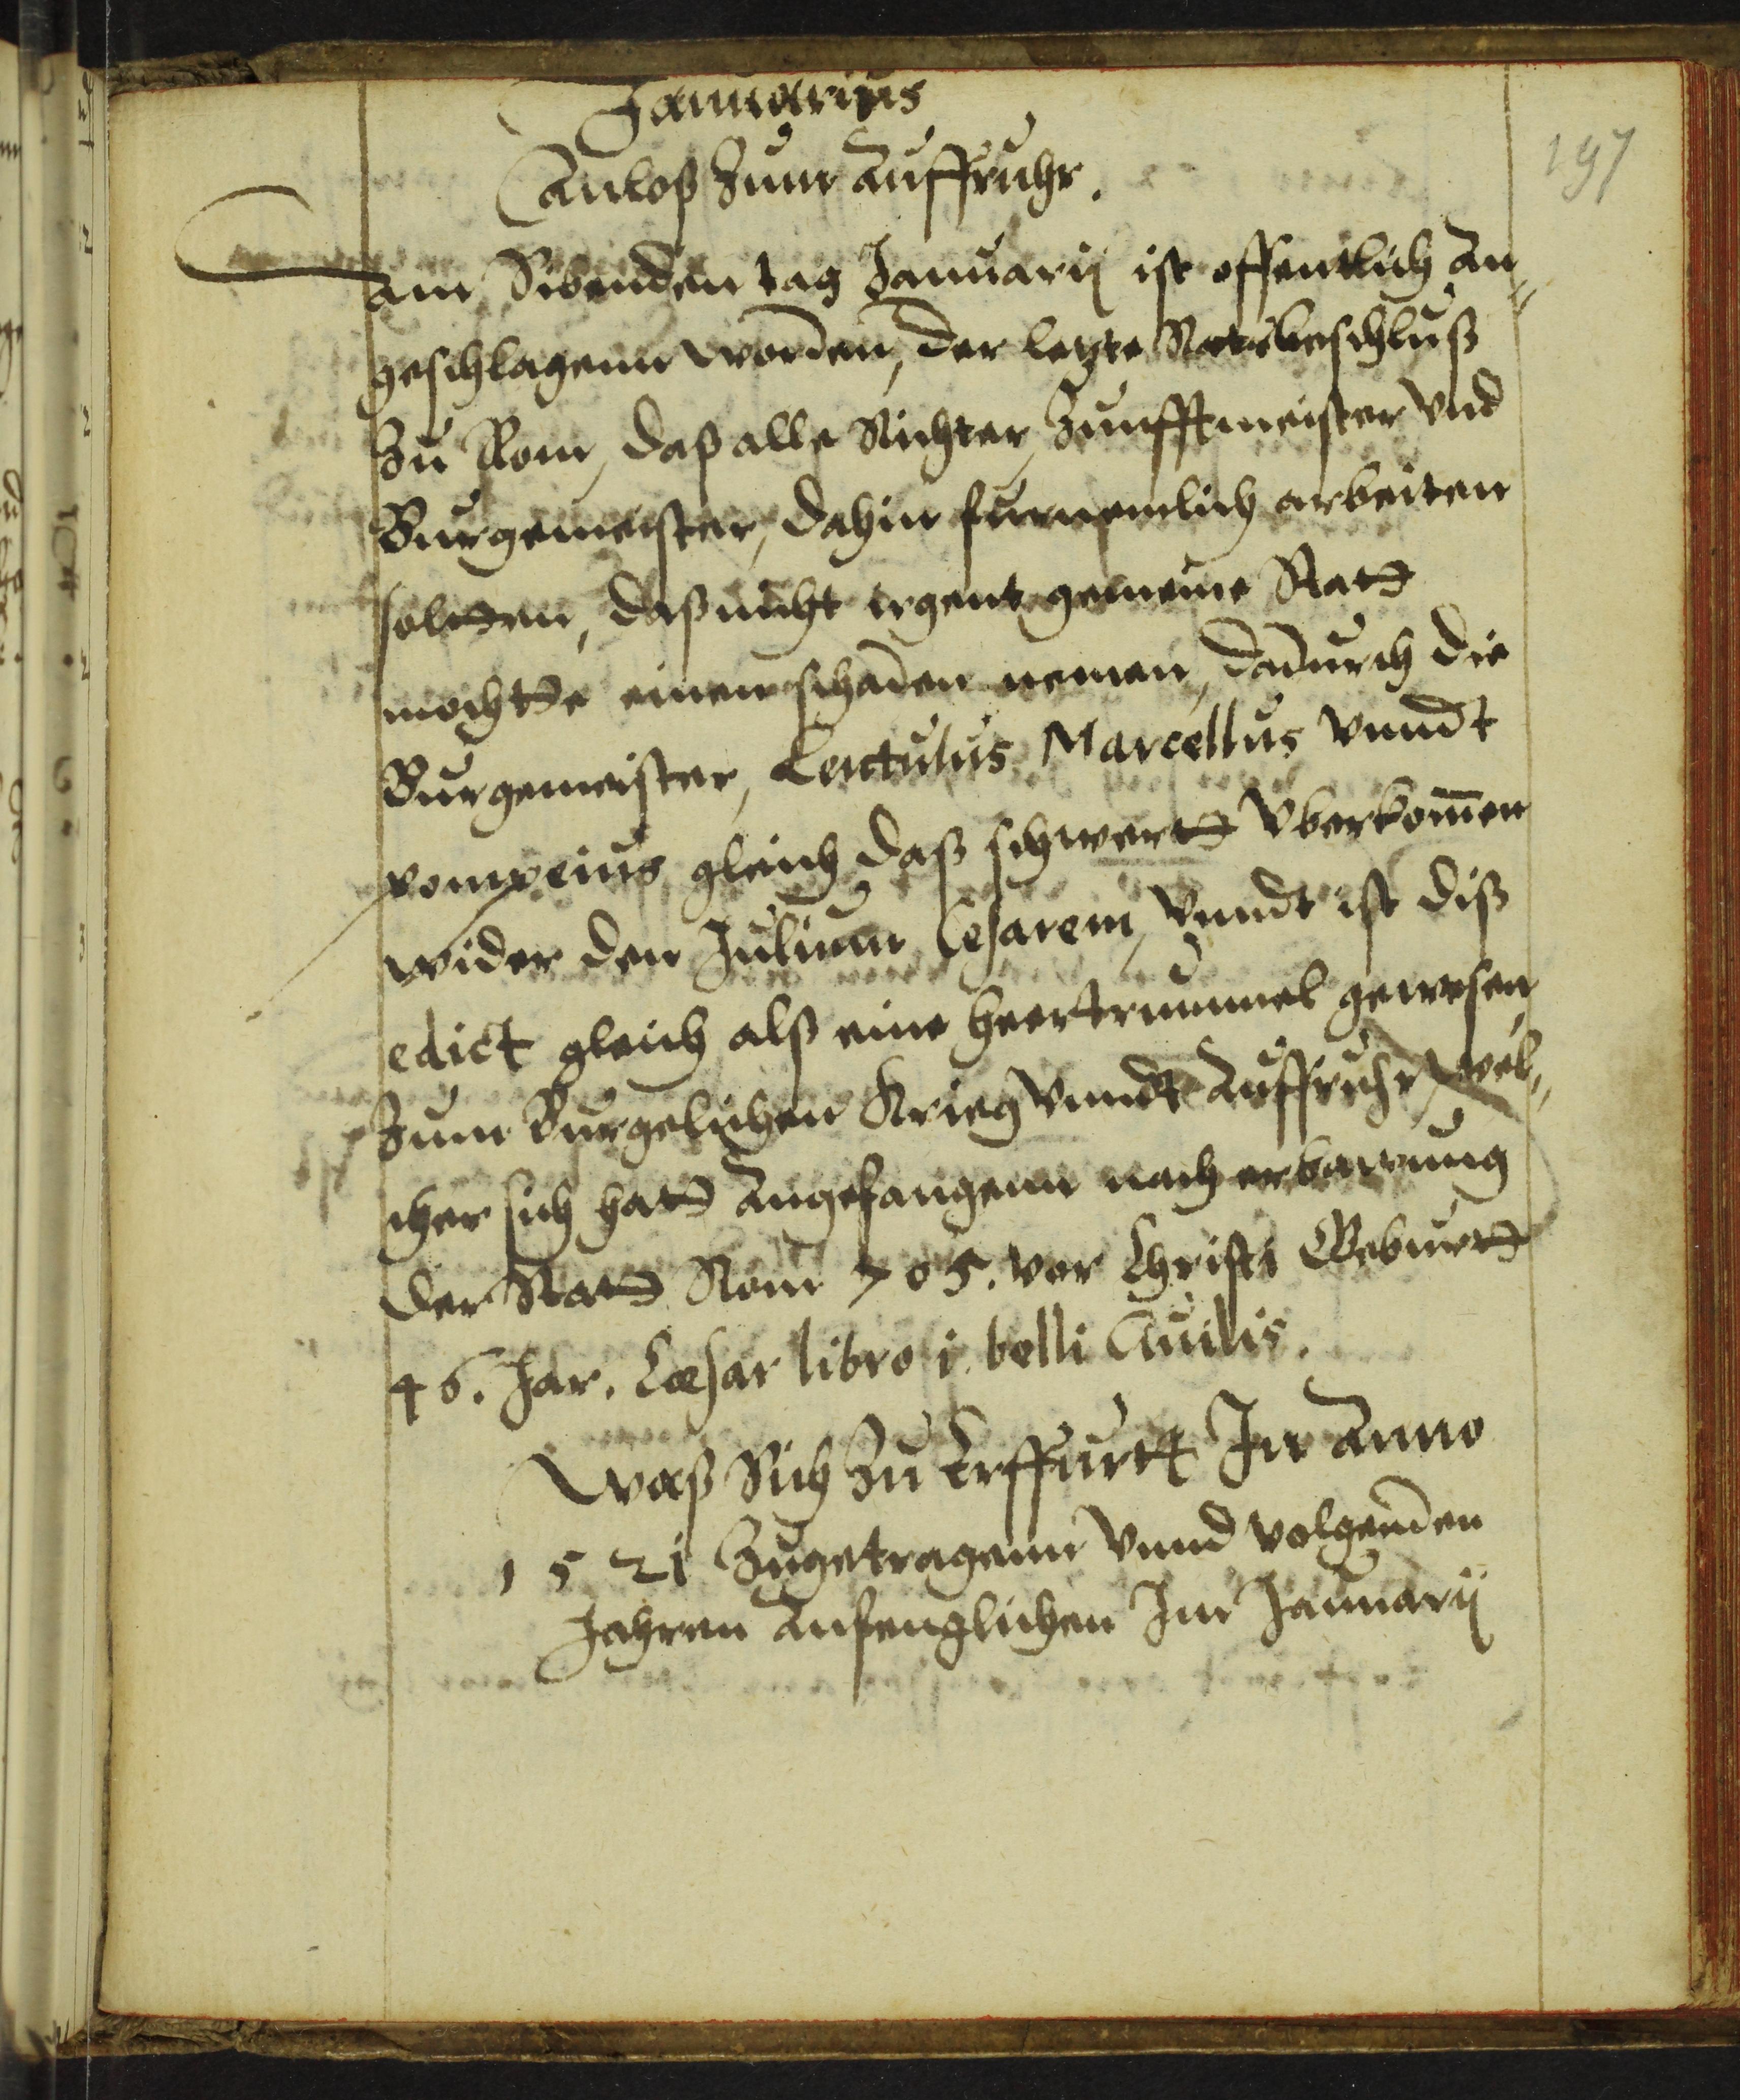 Januarius
197
Anlos Zum Auffruhr.
Am Sibenden tag Januarij ist offentlich An-
geschlagenn worden, der letzte Ratsbeschluß
Zu Rom, daß alle Richter, Zunfftmeister Vnd
Burgemeister, dahin furnemlich arbeiten
soltten, daß nicht irgent gemeine Stadt
mochtte einen schaden nemen, dadurch die
Burgemeister, Lentulus Marcellus Vnndt
pompeius gleich daß schwertt Vberkommen
wider den Julium Cesarem, Vnndt ist diß
edict gleich alß eine heertrummel gewesen,
Zum Burgelichen Krieg Vnndt Auffruhr, wel-
cher sich hatt Angefangenn nach erbawung
der Stadt Rom 705. vor Christi Geburtt
46. Jar. Cæsar libro i. belli Ciuilis.
Waß Sich Zu Erffurtt In Anno
1521 Zugetragenn Vnnd volgenden
Jahren Anfenglichen Im Januarij